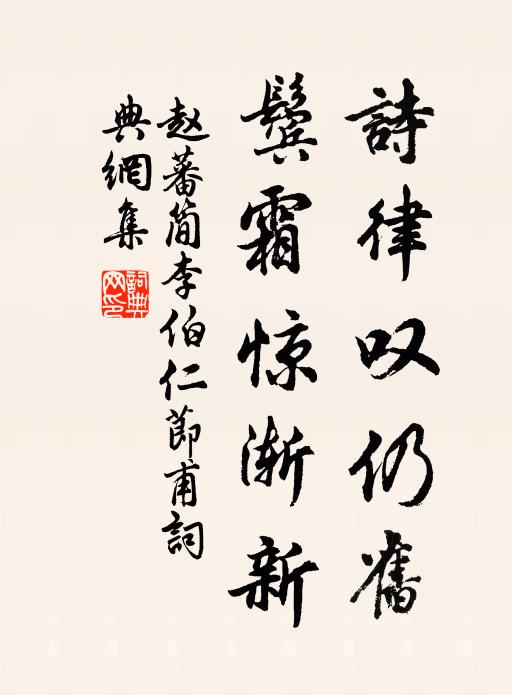 詩律叹仍舊
鬓霜惊渐新
赵蕃简李伯仁節甫詞
典網集
詞典
网印